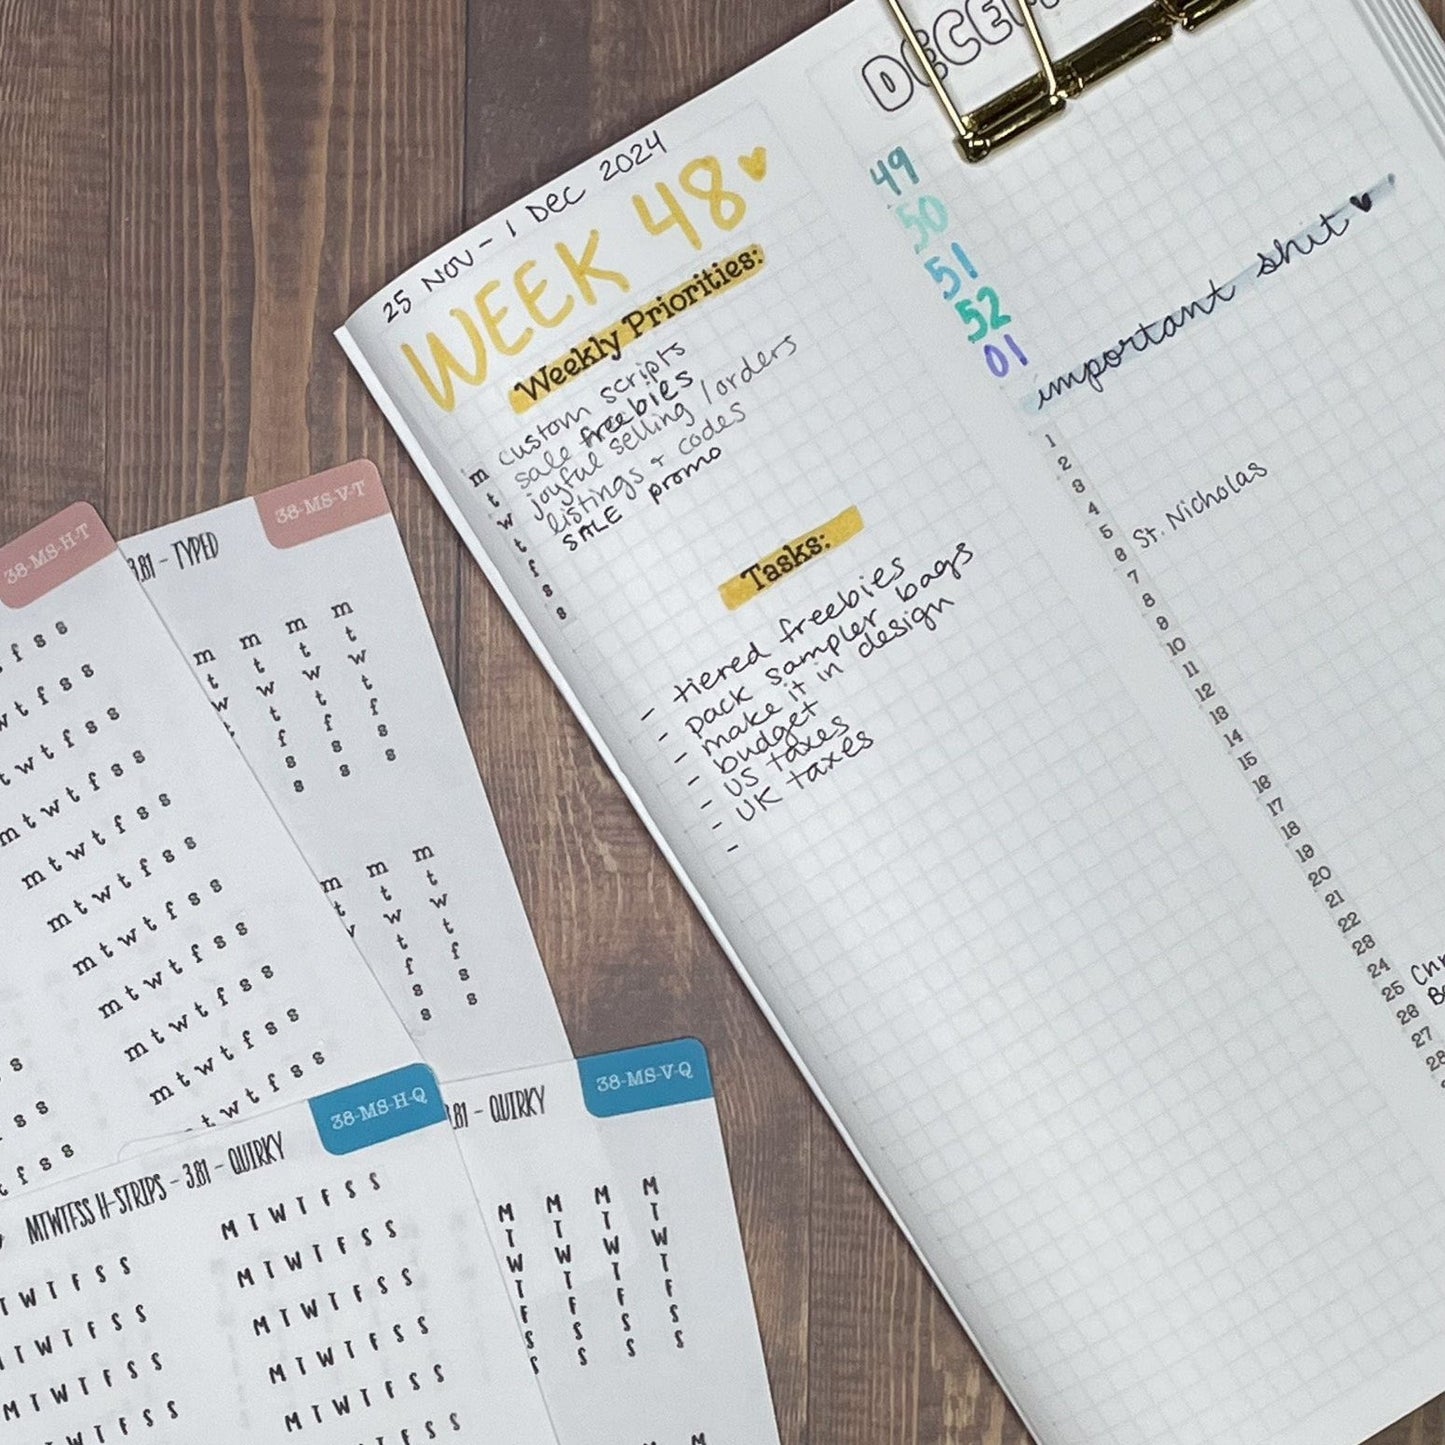 25 NOV - 1 DEC 2024
WEEK 48
Weekly Priorities:
m custom scripts
t sale freebies
w joyful selling / orders
t listings + codes
f SALE promo
s
s
Tasks:
- tiered freebies
- pack sampler bags
- make it in design
- budget
- US taxes
- UK taxes
-
49
50
51
52
01
important shit
1
2
3
4
5
6 St. Nicholas
7
8
9
10
11
12
13
14
15
16
17
18
19
20
21
22
23
24
25
26
27
28
38-MS-H-T
f s s
w t f s s
t w t f s s
m t w t f s s
m t w t f s s
m t w t f s s
m t w t f s s
m t w t f s s
m t w t f s s
m t w t f s s
t w t f s s
s
s s
t f s s
38-MS-V-T
3.81 - TYPED
m m m m
t t t t
w w w w
t t t
f f f
s s s
s s s
m m m
t t t
w w
t t
f f
s s
s s
38-MS-H-Q
MTWTFSS H-STRIPS - 3.81 - QUIRKY
M T W T F S S
T W T F S S
M T W T F S S
T W T F S S
M T W T F S S
T W T F S S
M T W T F S S
M T W T F S S
M T W T F S S
T F S S
F S S
38-MS-V-Q
3.81 - QUIRKY
M M M M
T T T T
W W W W
T T T T
F F F F
S S S S
S S S S
M M